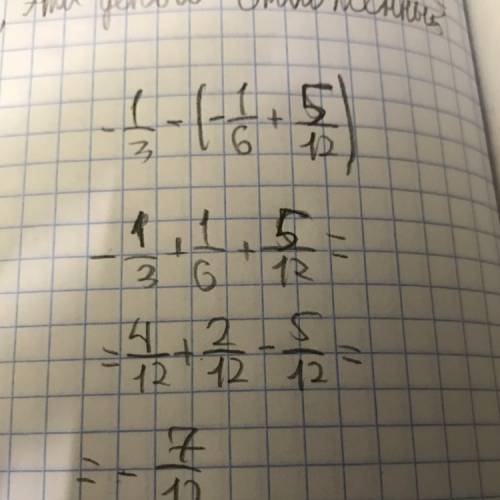 -1/3 - (-1/6 + 5/12)
-1/3 + 1/6 + 5/12 =
= 4/12 + 2/12 - 5/12 =
= - 7/12